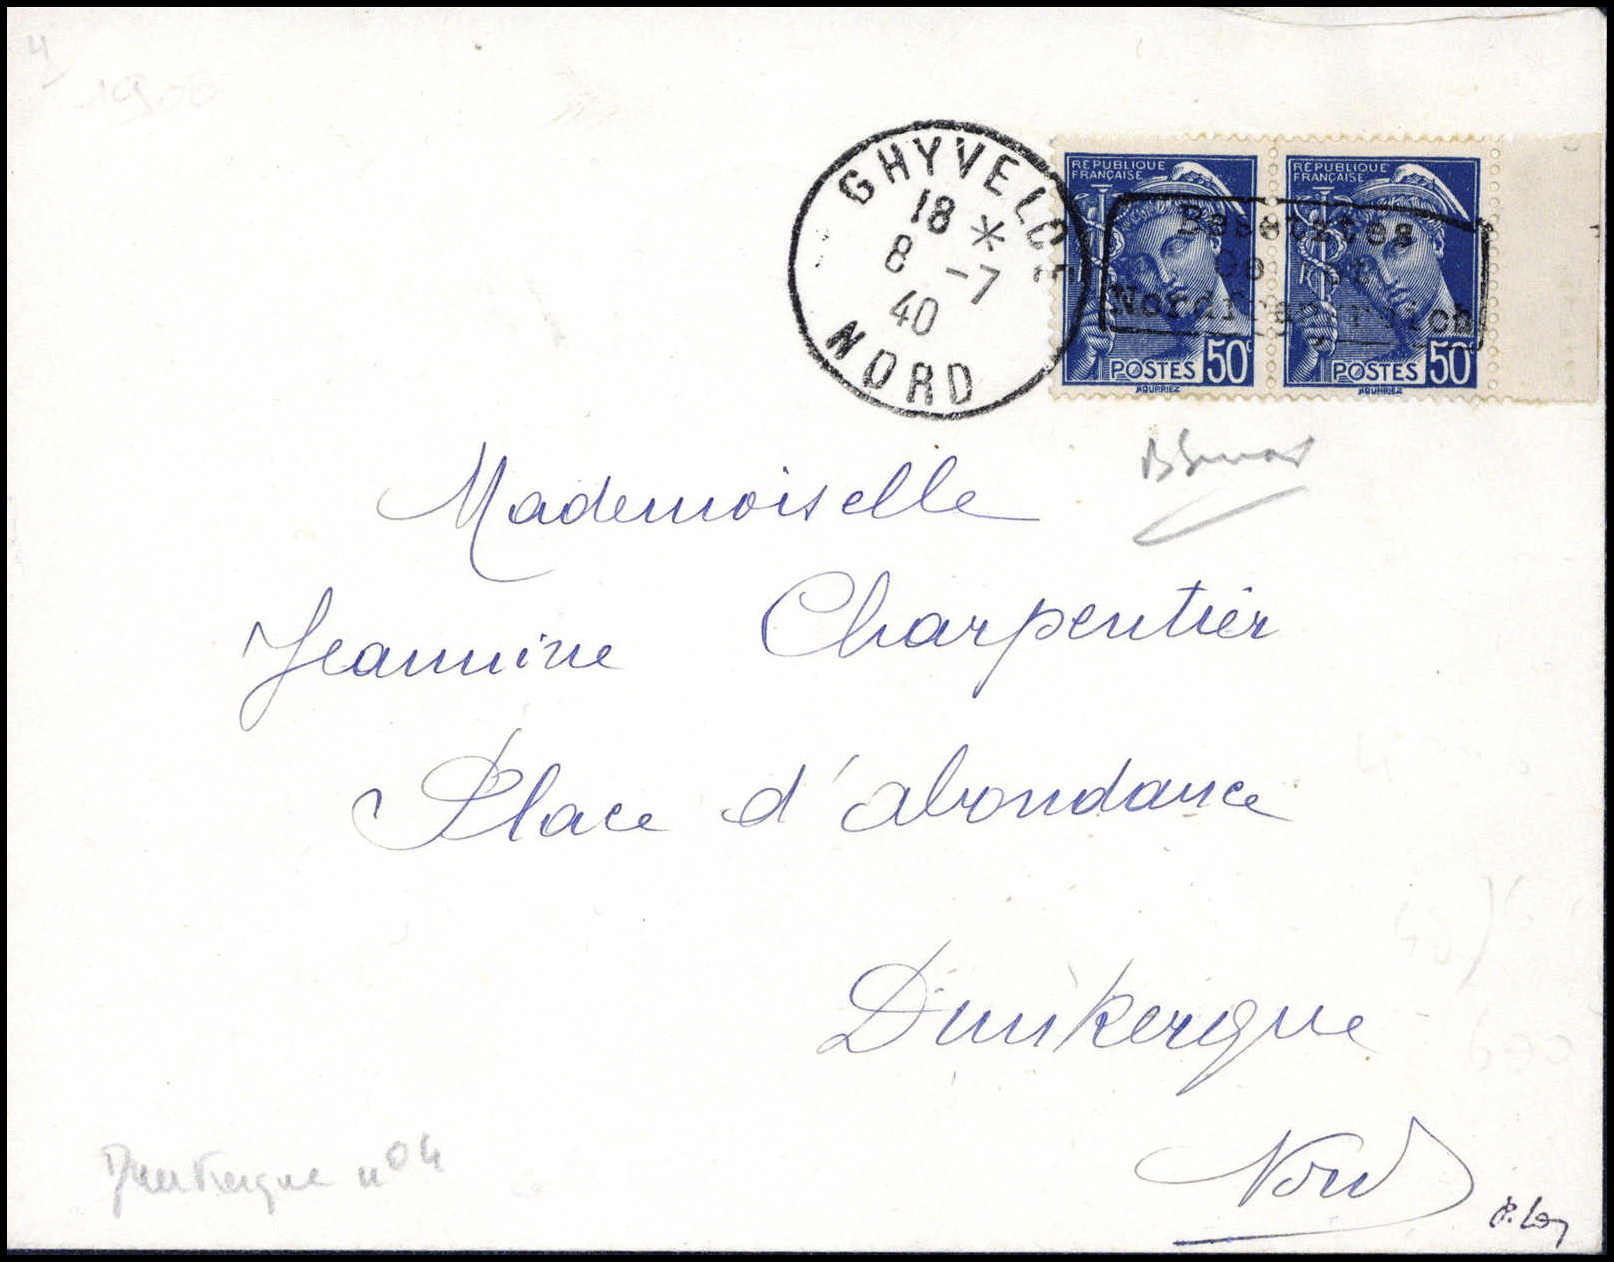 GHYVELDE
18 *
8 -7
40
NORD
REPUBLIQUE FRANÇAISE
REPUBLIQUE FRANÇAISE
Besetztes
Gebiet
Nordfrankreich
POSTES 50c
POSTES 50c
Mademoiselle
Jeannine Charpentier
Place d'abondance
Dunkerque
Nord
Dunkerque n04